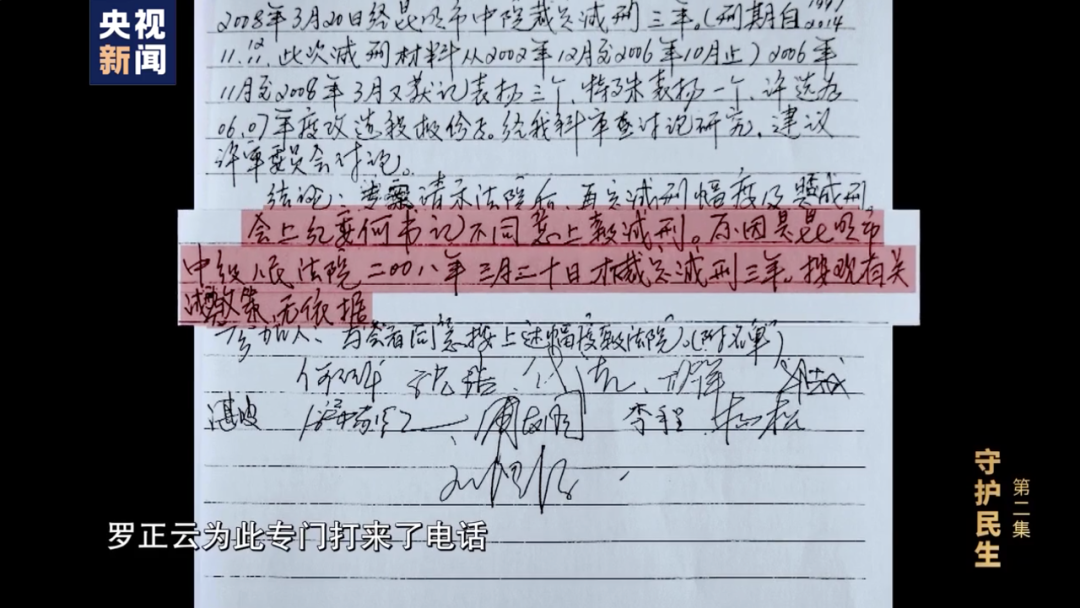 央视
新闻
2008年3月20日经昆明市中院裁定减刑三年。(刑期自1997
2014
11.12.
11.11.此次减刑材料从2002年12月至2006年10月止)2006年
11月至2008年3月又获记表扬三个、特殊表扬一个、评选为
06.07年度改造积极份子。经我科审查讨论研究,建议
评审委员会讨论。
结论:专案请示法院后,再定减刑幅度及呈减刑。
会上纪委何书记不同意上报减刑。原因是昆明市
中级人民法院二00八年三月二十日才裁定减刑三年。按现有关
减刑政策无依据
参加人、与会者同意按上述幅度报法院。(附名单)
李程
罗正云为此专门打来了电话
守护民生
第二集